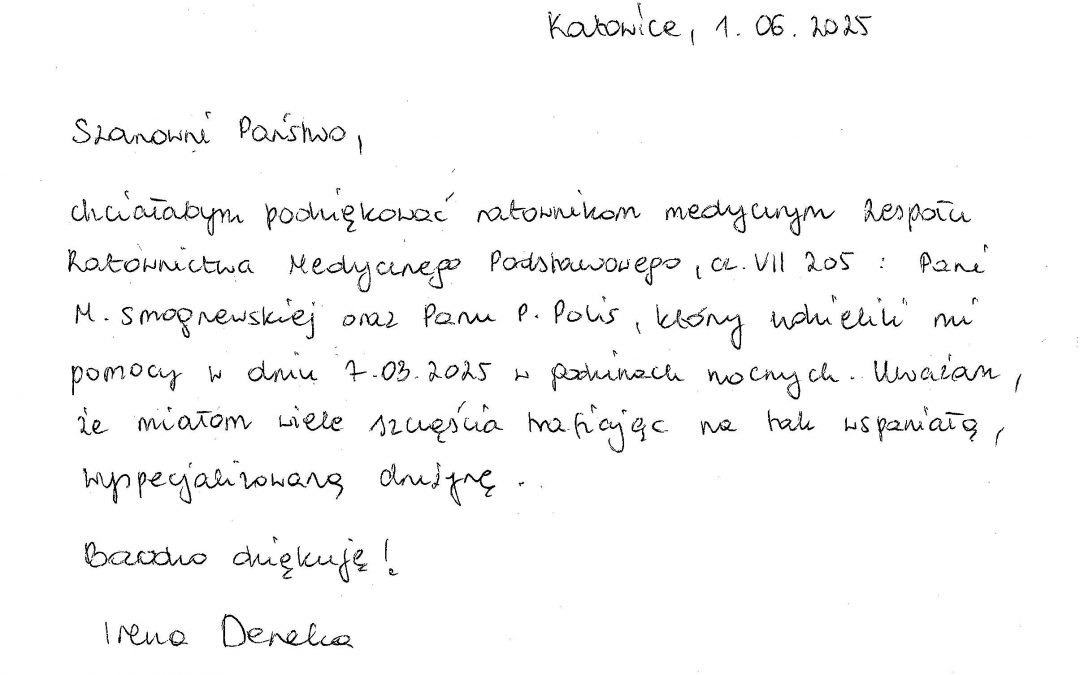 Katowice, 1.06.2025
Szanowni Państwo,
chciałabym podziękować ratownikom medycznym zespołu
Ratownictwa Medycznego Podstawowego, cz. VII 205 : Pani
M. Smogrewskiej oraz Panu P. Polis, którzy udzielili mi
pomocy w dniu 7.03.2025 w godzinach nocnych. Uważam,
że miałam wiele szczęścia trafiając na tak wspaniałą,
wyspecjalizowaną drużynę.
Bardzo dziękuję!
Irena Dereka